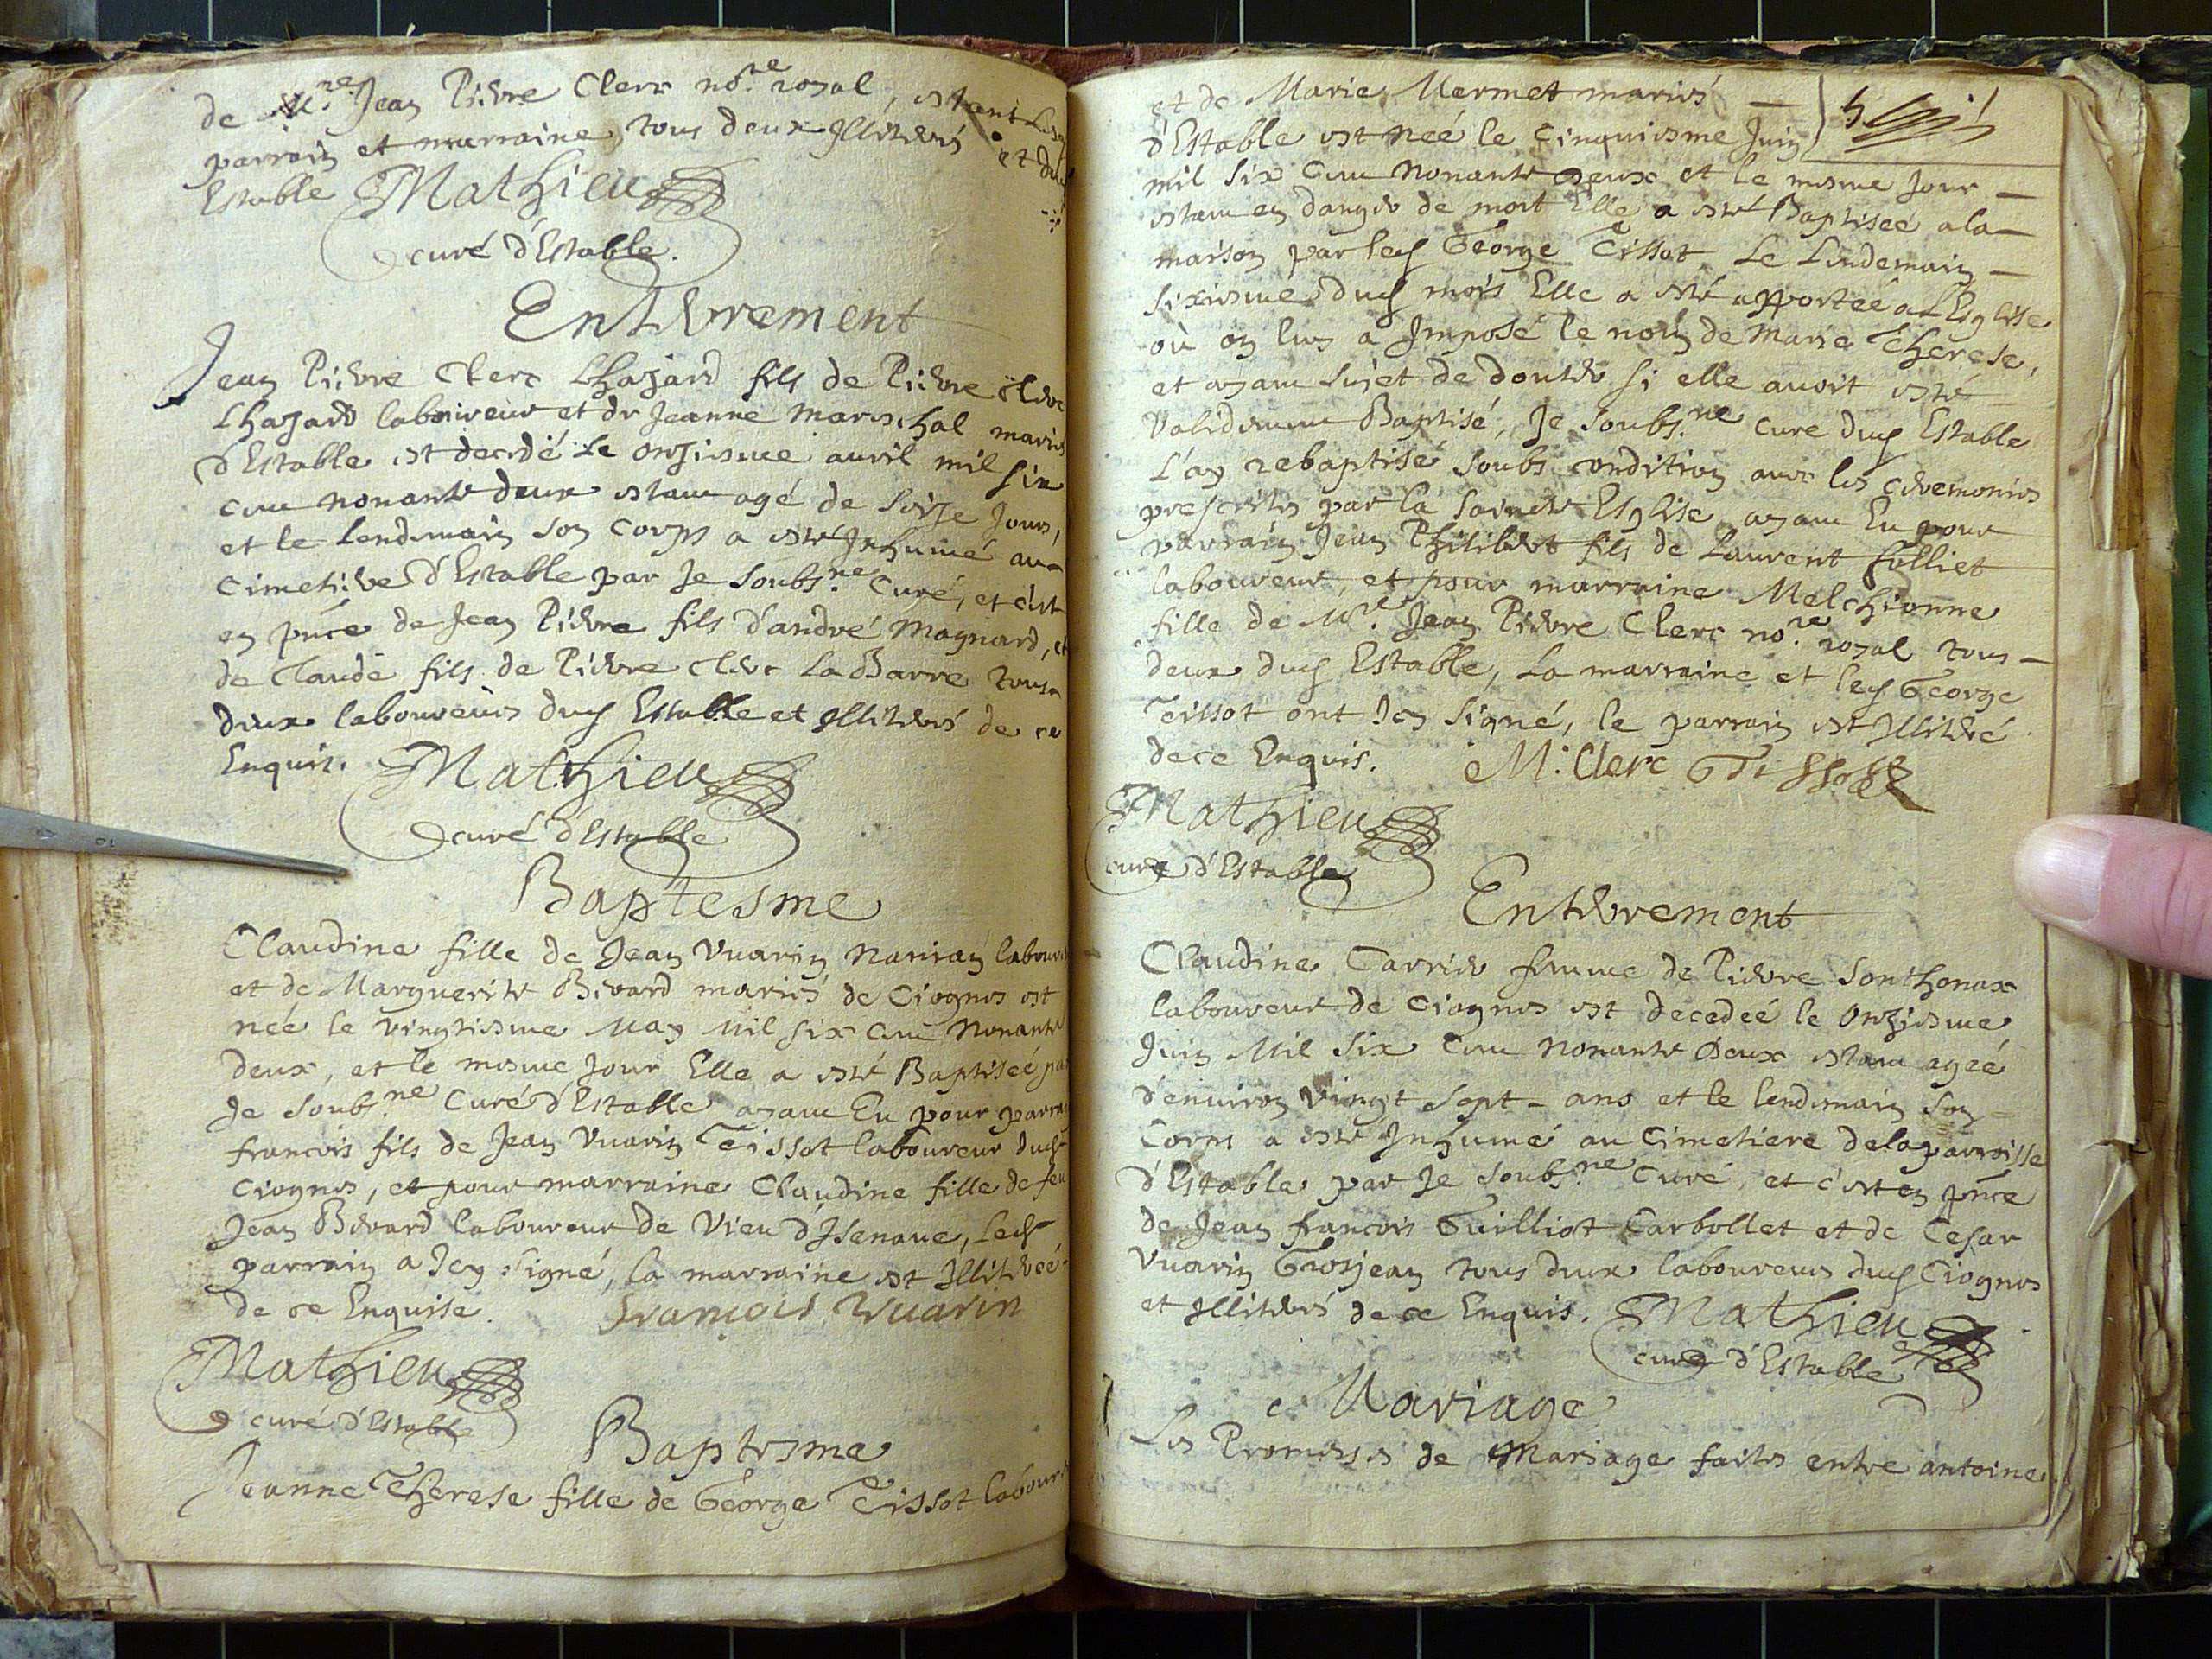 de M.re Jean Pierre Clerc no.re royal, estant
parrain et marraine, tous deux Illiterés et
Estable Mathieu
curé d'Estable.
Enterrement
Jean Pierre Clerc Lhazard fils de Pierre Clerc
Lhazard laboureur et de Jeanne Mareschal mariés
d'Estable est decedé Le onziesme auril mil six
cens nonante deux estant agé de seize jours,
et le lendemain son corps a esté Inhumé au
Cimetiere d'Estable par Je soubs.ne Curé, et c'est
en pñce de Jean Pierre fils d'andré Magnard, et
de Claude fils de Pierre Clerc La Barre tous
deux laboureurs dud Estable et Illiterés de ce
Enquis. Mathieu
curé d'Estable
Baptesme
Claudine fille de Jean Vuarin laboure
et de Marguerite Berard mariés de Ciognes est
neé le vingtiesme May Mil six cens Nonante
deux, et le mesme jour Elle a esté Baptiseé par
Je soubs.ne Curé d'Estable ayant Eu pour parrain
francois fils de Jean Vuarin Tissot laboureur dud
Ciognes, et pour marraine Claudine fille de feu
Jean Berard laboureur de Vieu d'Isenaue, Led
parrain a Icy signé, la marraine est Illitereé
de ce Enquise. francois Vuarin
Mathieu
curé d'Estable
Baptesme
Jeanne Therese fille de George Tissot laboure
et de Marie Mermet mariés —
d'Estable est neé le Cinquiesme Juin
mil six cens nonante deux et le mesme jour —
estant en danger de mort Elle a esté Baptiseé a la —
maison par led George Tissot Le Lendemain —
sixiesme dud mois Elle a esté apporteé a l'Esglise
où on luy a Imposé le nom de Marie Therese,
et ayant sujet de douter si elle auoit esté
Validement Baptisé, Je soubs.ne Curé dud Estable
L'ay rebaptisé soubs condition auec les ceremonies
prescrites par la saincte Esglise, ayant Eu pour
parrain Jean Philibert fils de Laurent folliet
laboureur, et pour marraine Melchionne
fille de M.re Jean Pierre Clerc no.re royal tous —
deux dud Estable, La marraine et led George
Tissot ont Icy signé, le parrain est Illiteré
de ce Enquis. M: Clerc G Tissot
Mathieu
curé d'Estable
Enterrement
Claudine Carrier femme de Pierre Sonthonax
laboureur de Ciognes est decedeé le onziesme
Juin Mil six cens nonante deux estant ageé
d'enuiron vingt sept - ans et le lendemain son
Corps a esté Inhumé au Cimetiere de la parroisse
d'Estable par Je soubs.ne Curé, et c'est en pñce
de Jean francois Guilliot Carbollet et de Cesar
Vuarin Grosjean tous deux laboureurs dud Ciognes
et Illiterés de ce Enquis. Mathieu
curé d'Estable
Mariage
Les Promesses de Mariage faites entre antoine